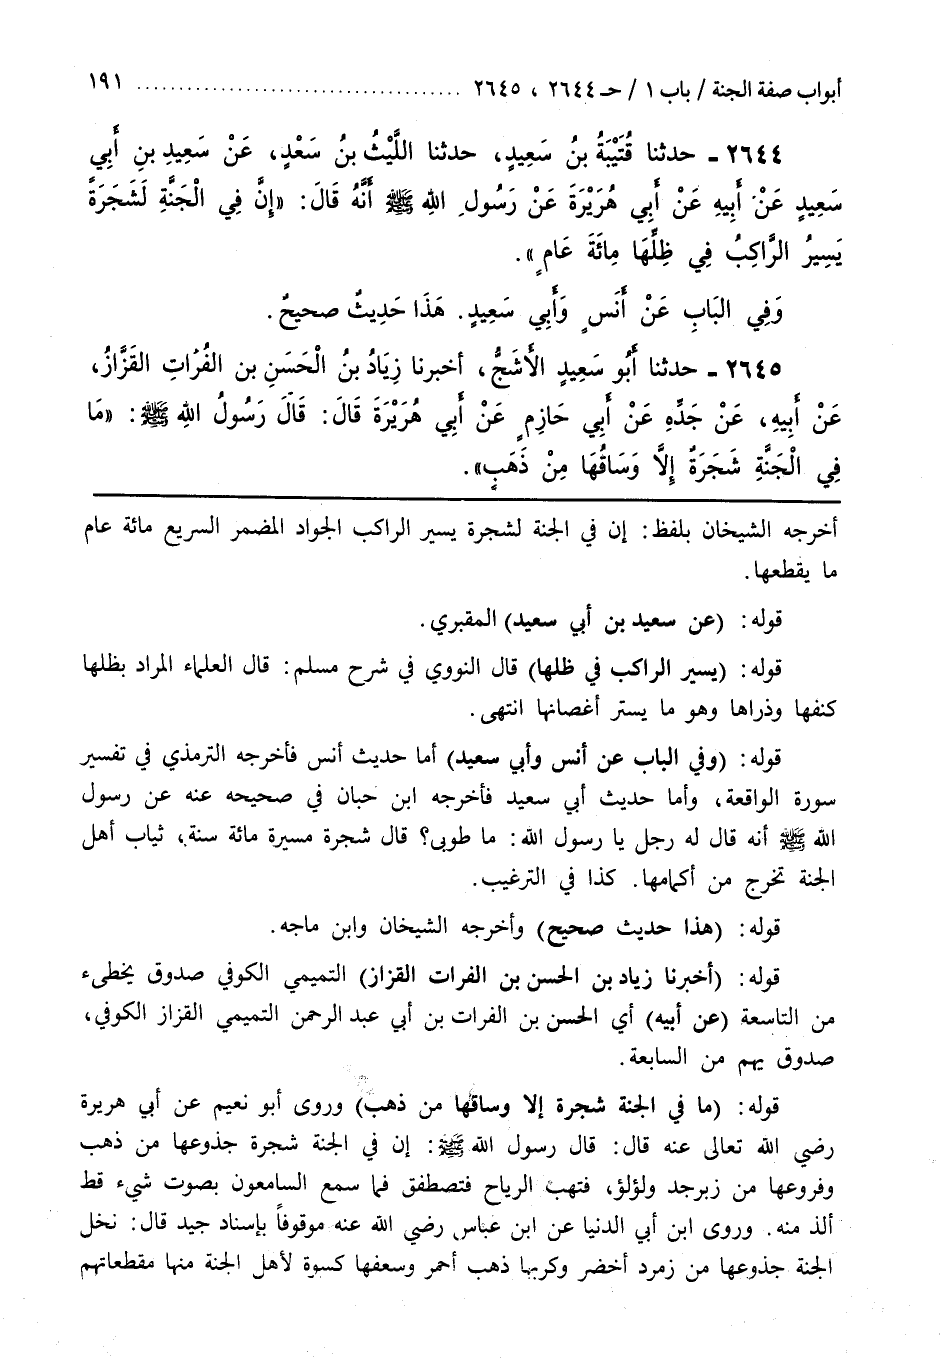 أبواب صفة الجنة / باب ١ / حـ ٢٦٤٤ ، ٢٦٤٥ ...................................... ١٩١
٢٦٤٤ ـ حدثنا قُتَيْبَةُ بنُ سَعِيدٍ، حدثنا اللَّيْثُ بنُ سَعْدٍ، عَنْ سَعِيدِ بنِ أَبِي
سَعِيدٍ عَنْ أَبِيهِ عَنْ أَبِي هُرَيْرَةَ عَنْ رَسُولِ اللهِ ﷺ أَنَّهُ قَالَ: «إِنَّ فِي الْجَنَّةِ لَشَجَرَةً
يَسِيرُ الرَّاكِبُ فِي ظِلِّهَا مِائَةَ عَامٍ».
وَفِي البَابِ عَنْ أَنَسٍ وَأَبِي سَعِيدٍ. هَذَا حَدِيثٌ صحيحٌ.
٢٦٤٥ ـ حدثنا أَبُو سَعِيدٍ الأَشَجُّ، أخبرنا زِيَادُ بنُ الْحَسَنِ بن الفُرَاتِ القَزَّازُ،
عَنْ أَبِيهِ، عَنْ جَدِّهِ عَنْ أَبِي حَازِمٍ عَنْ أَبِي هُرَيْرَةَ قَالَ: قَالَ رَسُولُ اللهِ ﷺ: «مَا
فِي الْجَنَّةِ شَجَرَةٌ إِلَّا وَسَاقُهَا مِنْ ذَهَبٍ».
أخرجه الشيخان بلفظ: إن في الجنة لشجرة يسير الراكب الجواد المضمر السريع مائة عام
ما يقطعها.
قوله: (عن سعيد بن أبي سعيد) المقبري.
قوله: (يسير الراكب في ظلها) قال النووي في شرح مسلم: قال العلماء المراد بظلها
كنفها وذراها وهو ما يستر أغصانها انتهى.
قوله: (وفي الباب عن أنس وأبي سعيد) أما حديث أنس فأخرجه الترمذي في تفسير
سورة الواقعة، وأما حديث أبي سعيد فأخرجه ابن حبان في صحيحه عنه عن رسول
الله ﷺ أنه قال له رجل يا رسول الله: ما طوبى؟ قال شجرة مسيرة مائة سنة، ثياب أهل
الجنة تخرج من أكمامها. كذا في الترغيب.
قوله: (هذا حديث صحيح) وأخرجه الشيخان وابن ماجه.
قوله: (أخبرنا زياد بن الحسن بن الفرات القزاز) التميمي الكوفي صدوق يخطىء
من التاسعة (عن أبيه) أي الحسن بن الفرات بن أبي عبد الرحمن التميمي القزاز الكوفي،
صدوق يهم من السابعة.
قوله: (ما في الجنة شجرة إلا وساقها من ذهب) وروى أبو نعيم عن أبي هريرة
رضي الله تعالى عنه قال: قال رسول الله ﷺ: إن في الجنة شجرة جذوعها من ذهب
وفروعها من زبرجد ولؤلؤ، فتهب الرياح فتصطفق فما سمع السامعون بصوت شيء قط
ألذ منه. وروى ابن أبي الدنيا عن ابن عباس رضي الله عنه موقوفاً بإسناد جيد قال: نخل
الجنة جذوعها من زمرد أخضر وكربها ذهب أحمر وسعفها كسوة لأهل الجنة منها مقطعاتهم